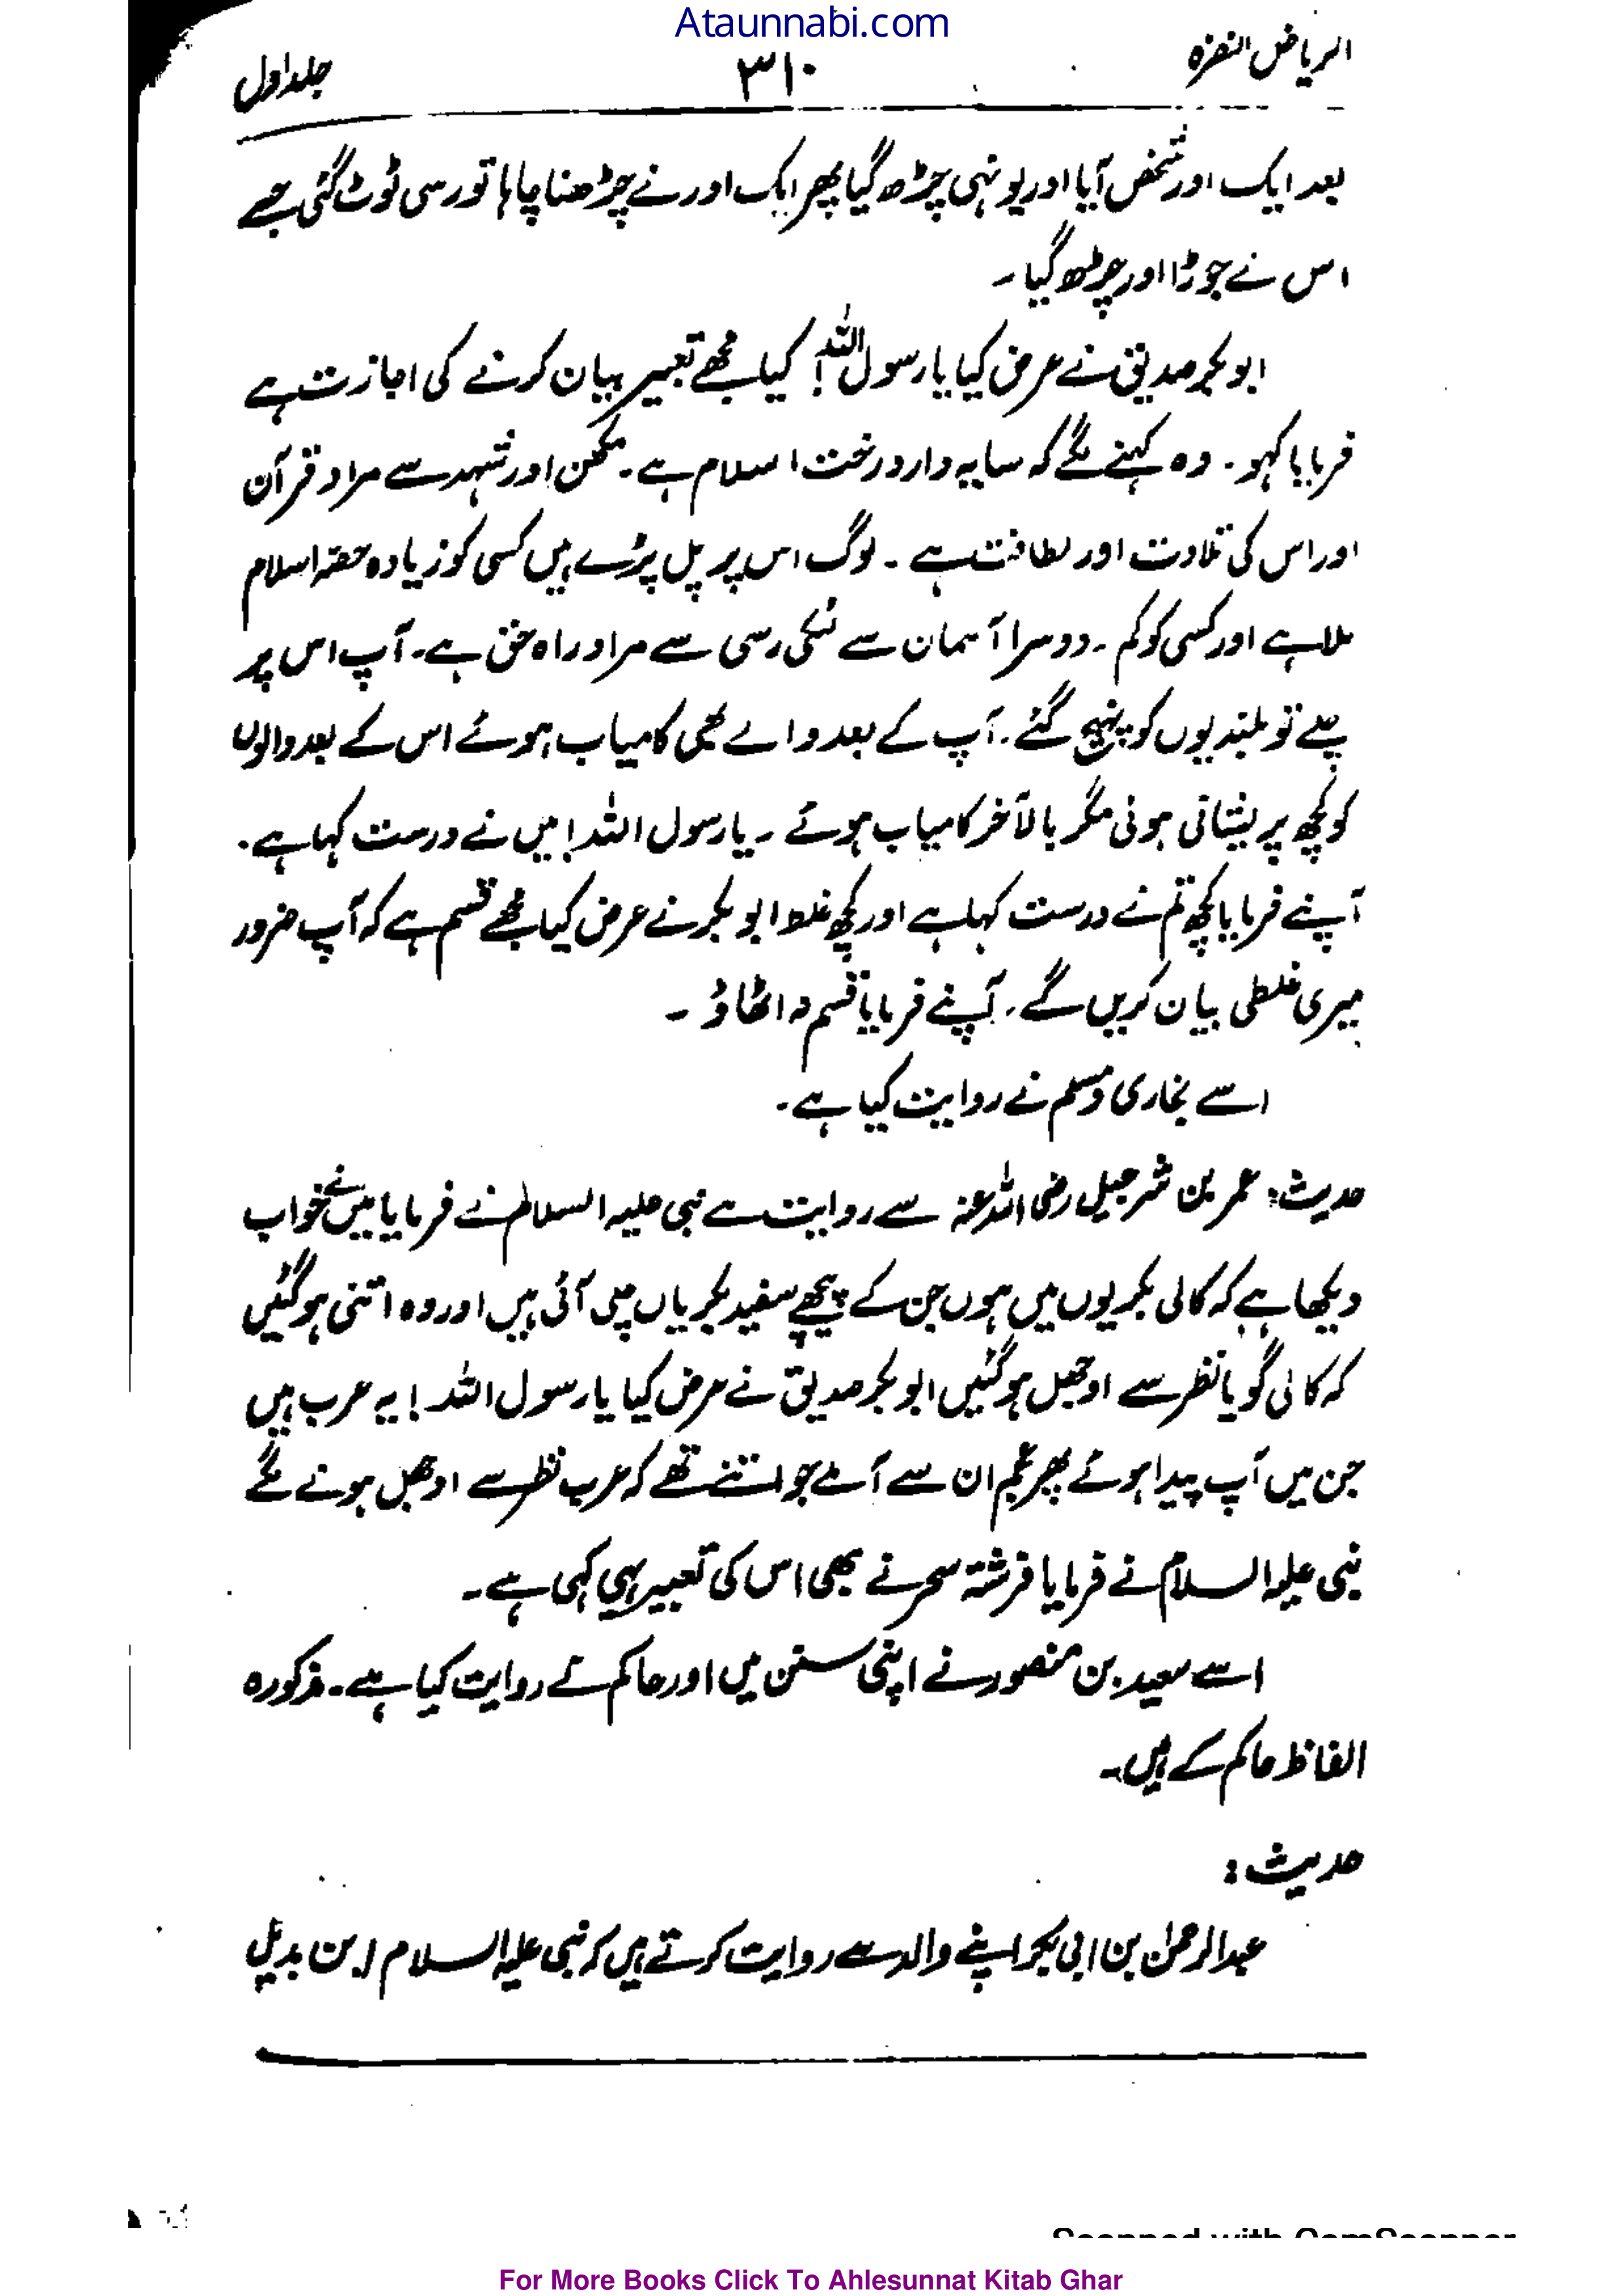 Ataunnabi.com
الریاض النضرہ ۳۱۰ جلد اول
بعد ایک اور شخص آیا اور یونہی چڑھ گیا پھر ایک اور نے چڑھنا چاہا تو رسی ٹوٹ گئی جسے
اس نے جوڑا اور چڑھ گیا۔
ابوبکر صدیق نے عرض کیا یا رسول اللہ! کیا مجھے تعبیر بیان کرنے کی اجازت ہے
فرمایا کہو۔ وہ کہنے لگے کہ سایہ دار درخت اسلام ہے۔ مکھن اور شہد سے مراد قرآن
اور اس کی تلاوت اور لطافت ہے۔ لوگ اس پر پل پڑے ہیں کسی کو زیادہ حصہ اسلام
ملا ہے اور کسی کو کم۔ دوسرا آسمان سے لٹکی رسی سے مراد راہ حق ہے۔ آپ اس پر
چلے تو بلندیوں کو پہنچ گئے۔ آپ کے بعد والے بھی کامیاب ہوئے اس کے بعد والوں
کو کچھ پریشانی ہوئی مگر بالآخر کامیاب ہوئے۔ یا رسول اللہ! میں نے درست کہا ہے۔
آپنے فرمایا کچھ تم نے درست کہا ہے اور کچھ غلط ابوبکر نے عرض کیا مجھے قسم ہے کہ آپ ضرور
میری غلطی بیان کریں گے۔ آپنے فرمایا قسم نہ اٹھاؤ۔
اسے بخاری و مسلم نے روایت کیا ہے۔
حدیث: عمر بن شرجیل رضی اللہ عنہ سے روایت ہے نبی علیہ السلام نے فرمایا میں نے خواب
دیکھا ہے کہ کالی بکریوں میں ہوں جن کے پیچھے سفید بکریاں چلی آئی ہیں اور وہ اتنی ہو گئیں
کہ کالی گویا نظر سے اوجھل ہو گئیں ابوبکر صدیق نے عرض کیا یا رسول اللہ! یہ عرب ہیں
جن میں آپ پیدا ہوئے پھر عجم ان سے آ ملے جو اتنے تھے کہ عرب نظر سے اوجھل ہونے لگے
نبی علیہ السلام نے فرمایا فرشتہ سحر نے بھی اس کی تعبیر یہی کہی ہے۔
اسے سعید بن منصور نے اپنی سنن میں اور حاکم نے روایت کیا ہے۔ مذکورہ
الفاظ حاکم کے ہیں۔
حدیث:
عبدالرحمٰن بن ابی بکر اپنے والد سے روایت کرتے ہیں کہ نبی علیہ السلام ابن بدیل
Scanned with CamScanner
For More Books Click To Ahlesunnat Kitab Ghar